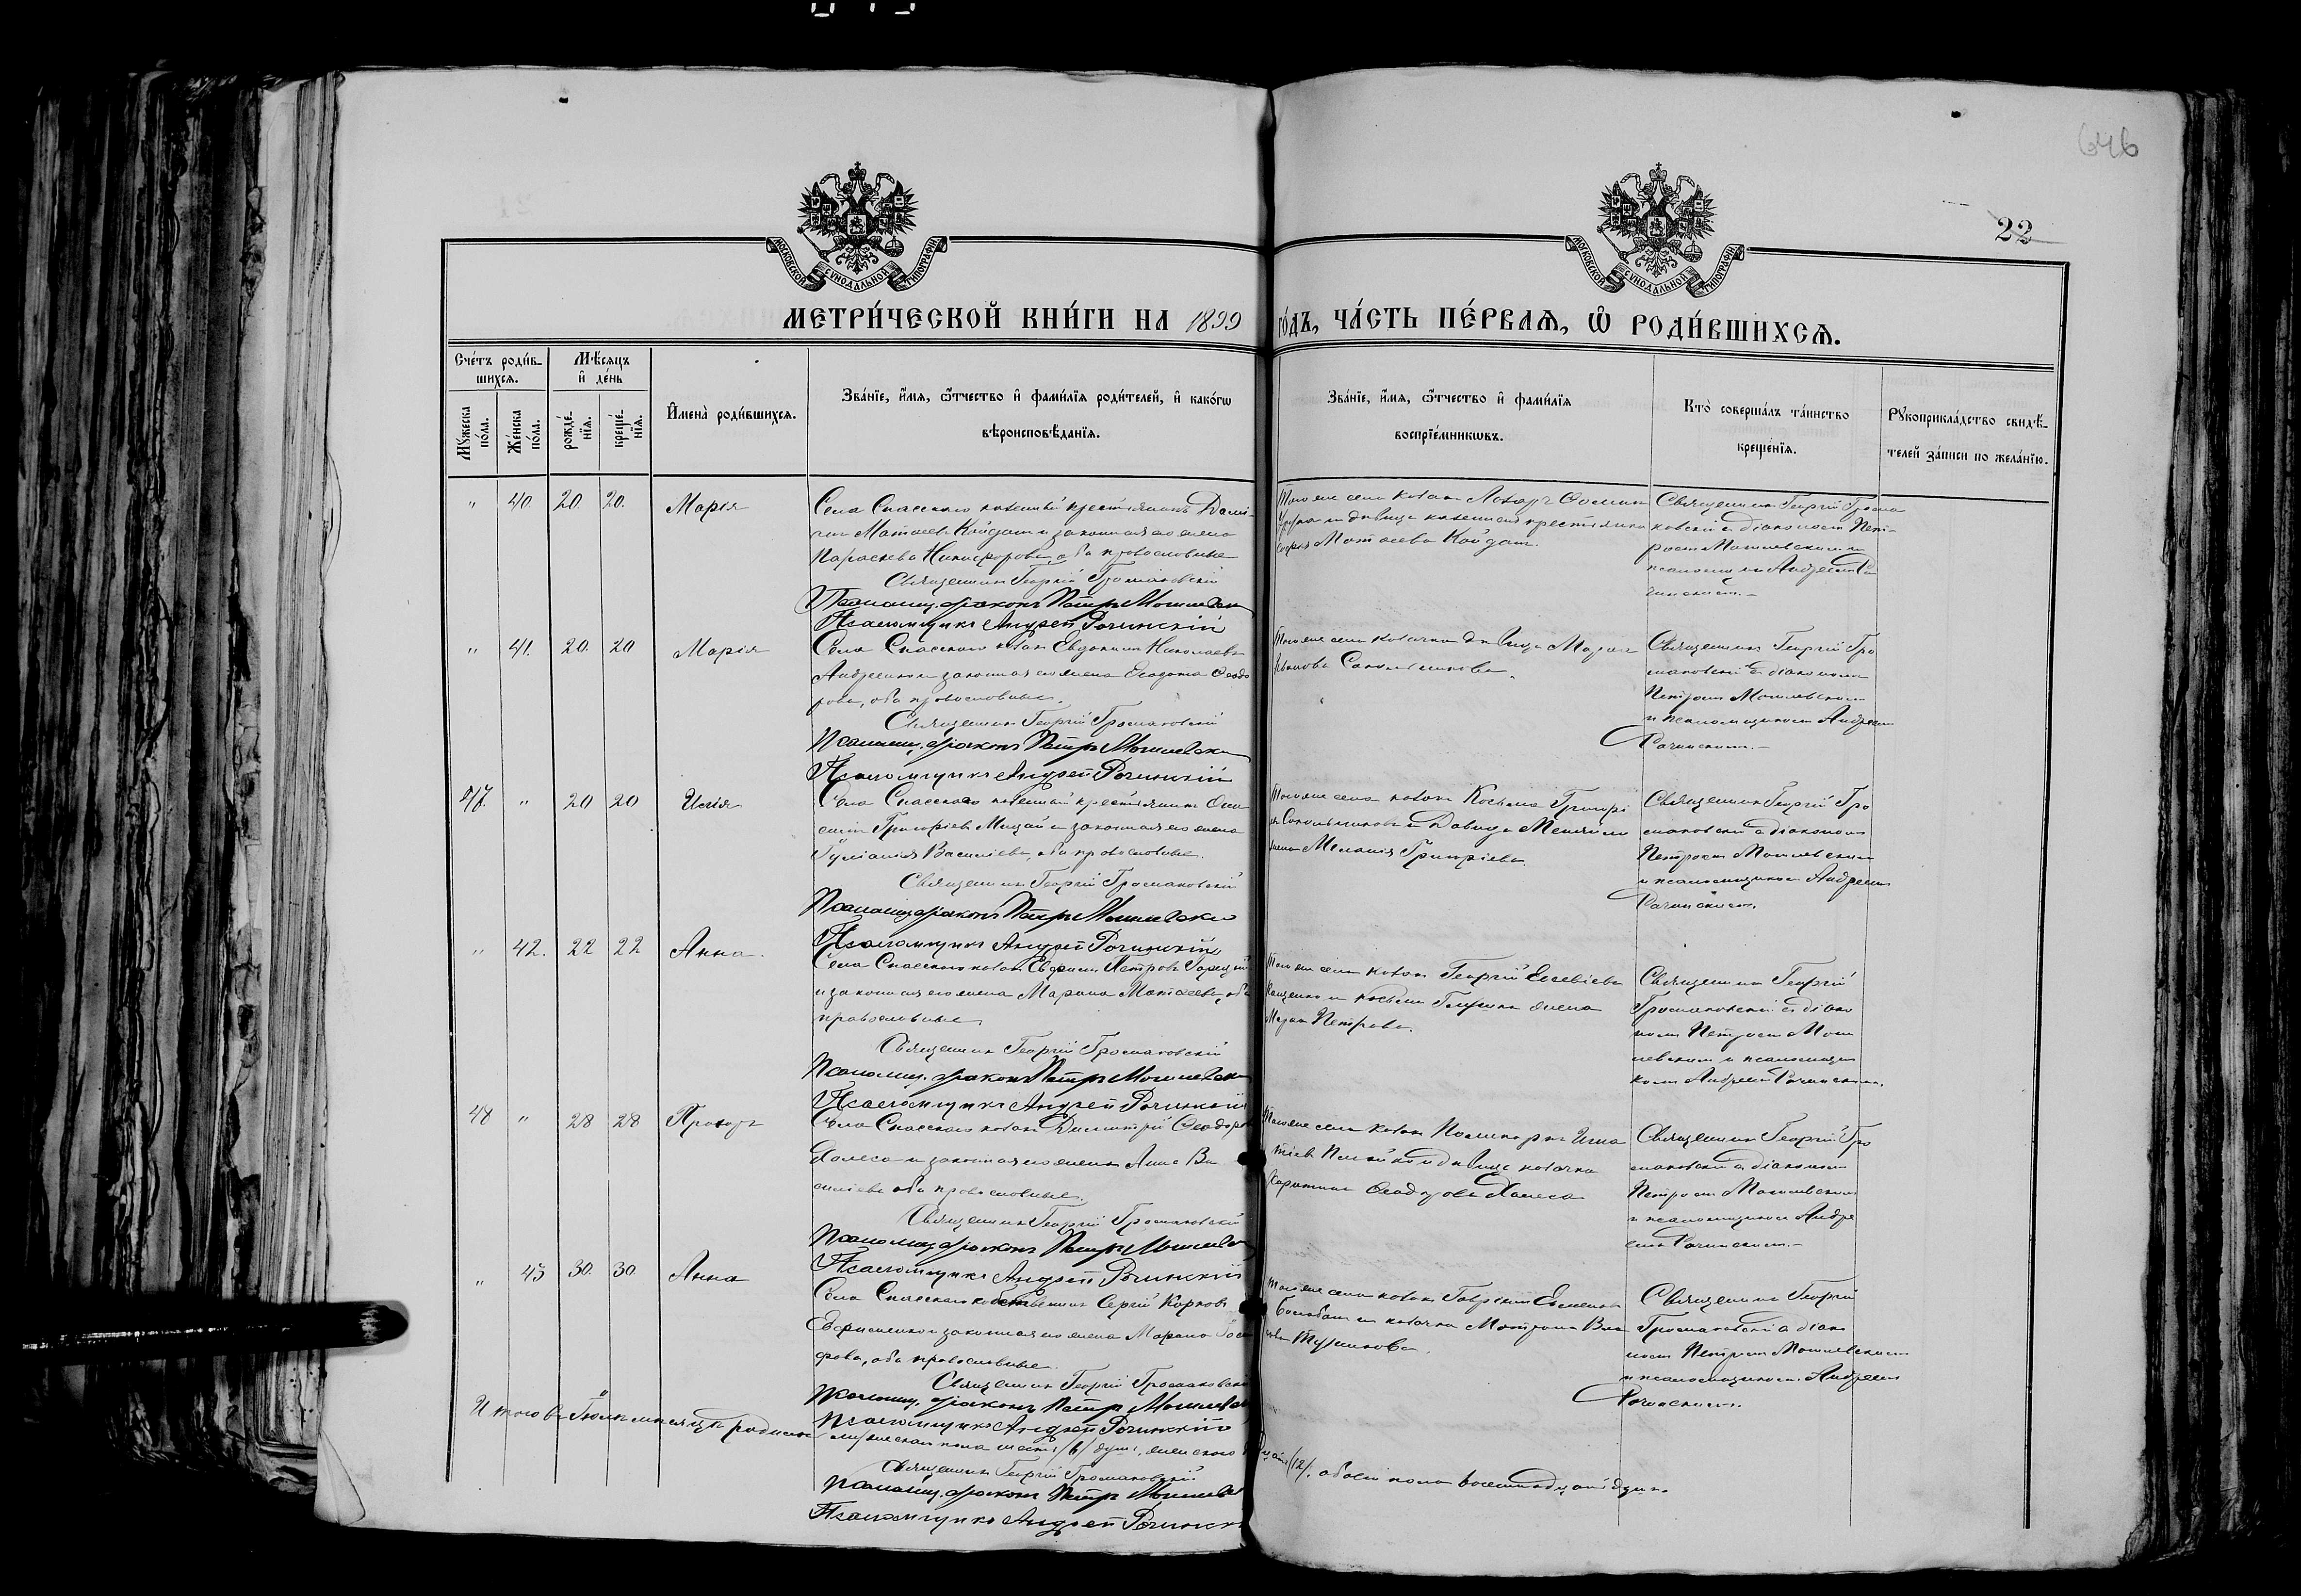 646
22
МОСКОВСКОЙ СѴНОДАЛЬНОЙ ТИПОГРАФІИ
МОСКОВСКОЙ СѴНОДАЛЬНОЙ ТИПОГРАФІИ
МЕТРИ́ЧЕСКОЙ КНИ́ГИ НА 1899 ГО́ДЪ, ЧА́СТЬ ПЕ́РВАѦ, Ѡ҆ РОДИ́ВШИХСѦ.
Сче́тъ роди́в-
шихсѧ.
Мѹ́жеска по́ла.
Же́нска по́ла.
Мѣ́сѧцъ
и҆ де́нь
рожде́-
нїѧ.
креще́-
нїѧ.
И҆мена̀ роди́вшихсѧ.
Зва́нїе, и҆́мѧ, ѻ҆́тчество и҆ фами́лїѧ роди́телей, и҆ како́гѡ
вѣроисповѣ́данїѧ.
Зва́нїе, и҆́мѧ, ѻ҆́тчество и҆ фами́лїѧ
воспрїе́мникѡвъ.
Кто̀ соверша́лъ та́инство
креще́нїѧ.
Рѹкоприкла́дство свидѣ́-
телей за́писи по жела́нїю.
" 40. 20. 20. Марія
Села Спасскаго казенный крестьянинъ Дані-
илъ Матѳеевъ Койдашъ и законная его жена
Параскева Никифорова, оба православные
Священникъ Георгій Громаковскій
Псаломщ. діаконъ Петръ Могилевскій
Псаломщикъ Андрей Рачинскій
Того же села козакъ Ѳомин
и дѣвица казеннаго крестьянина
Софія Матѳеева Койдашъ.
Священникъ Георгій Грома
ковскій съ діакономъ Пет-
ромъ Могилевскимъ и
псаломщикомъ Андреемъ Ра
чинскимъ.-
" 41. 20. 20 Марія
Села Спасскаго козакъ Евдокимъ Николаевъ
и законная его жена Ѳеодо
рова, оба православные.
Священникъ Георгій Громаковскій
Псаломщ. діаконъ Петръ Могилевскій
Псаломщикъ Андрей Рачинскій
Того же села козачка дѣвица Марія
Сокольникова.
Священникъ Георгій Гро
маковскій съ діакономъ
Петромъ Могилевскимъ
и псаломщикомъ Андреемъ
Рачинскимъ.-
47. " 20 20 Илія
Села Спасскаго казенный крестьянинъ
Григоріевъ и законная его жена
Іуліанія Василіева, оба православные.
Священникъ Георгій Громаковскій
Псаломщ. діаконъ Петръ Могилевскій
Псаломщикъ Андрей Рачинскій
Того же села козакъ Косьма Григорі
евъ Сокольниковъ и Давида
жена Меланія Григоріева.
Священникъ Георгій Гро
маковскій съ діакономъ
Петромъ Могилевскимъ
и псаломщикомъ Андреемъ
Рачинскимъ.
" 42. 22 22 Анна.
Села Спасскаго козакъ Петровъ
и законная его жена Марина Матѳеева, оба
православные
Священникъ Георгій Громаковскій
Псаломщ. діаконъ Петръ Могилевскій
Псаломщикъ Андрей Рачинскій
Того же села козакъ Георгій
и жена
Петрова.
Священникъ Георгій
Громаковскій съ діако
номъ Петромъ Моги
левскимъ и псаломщи
комъ Андреемъ Рачинскимъ.
48 " 28 28 Прохоръ
Села Спасскаго козакъ Димитрій Ѳеодоровъ
Халеса и законная его жена Анна Ва
силіева оба православные.
Священникъ Георгій Громаковскій
Псаломщ. діаконъ Петръ Могилевскій
Псаломщикъ Андрей Рачинскій
Того же села козакъ Поликарпъ Игна
тіевъ и дѣвица козачка
Ѳеодорова Халеса
Священникъ Георгій Гро
маковскій съ діакономъ
Петромъ Могилевскимъ
и псаломщикомъ Андре
емъ Рачинскимъ.-
" 43 30. 30. Анна
Села Спасскаго собственникъ Сергій Карповъ
и законная его жена Марина
оба православные.
Священникъ Георгій Громаковскій
Псаломщ. діаконъ Петръ Могилевскій
Псаломщикъ Андрей Рачинскій
Того же села козакъ
и козачка Матрона
Священникъ Георгій
Громаковскій съ діако
номъ Петромъ Могилевскимъ
и псаломщикомъ Андреемъ
Рачинскимъ.
Итого въ Іюлѣ мѣсяцѣ родилось мужескаго пола шесть /6/ душъ, женскаго /12/, обоего пола восемнадцать душъ.
Священникъ Георгій Громаковскій
Псаломщ. діаконъ Петръ Могилевскій
Псаломщикъ Андрей Рачинскій